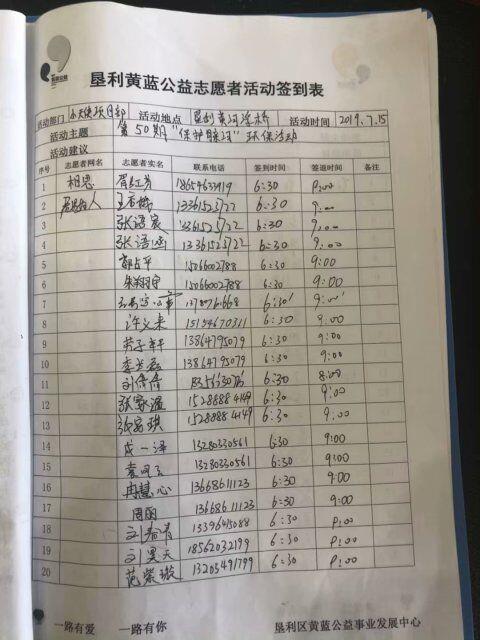 垦利黄蓝公益志愿者活动签到表
活动部门 小天使项目部 活动地点 垦利黄河浮桥 活动时间 2019.7.15
活动主题 第50期"保护母亲河"环保活动
活动建议
序号 志愿者网名 志愿者实名 联系电话 签到时间 签退时间 备注
1 相思 6:30 9:00
2 6:30 9:00
3 13361523722 6:30 9:00
4 张语涵 13361523722 6:30 9:00
5 15066002788 6:30 9:00
6 朱翔宇 15066002788 6:30 9:00
7 6:30 9:00
8 许文来 15154670311 6:30 9:00
9 苏子轩 13864795079 6:30 9:00
10 13864795079 6:30 9:00
11 刘倩倩 6:30 8:00
12 张家温 15288884149 6:30 9:00
13 张家琪 15288884149 6:30 9:00
14 成一泽 13280330561 6:30 9:00
15 13280330561 6:30 9:00
16 冉慧心 13668611123 6:30 9:00
17 周丽 13668611123 6:30 9:00
18 刘春青 13396415088 6:30 9:00
19 刘昊天 18562032199 6:30 9:00
20 范紫璇 13205491799 6:30 9:00
一路有爱 一路有你 垦利区黄蓝公益事业发展中心